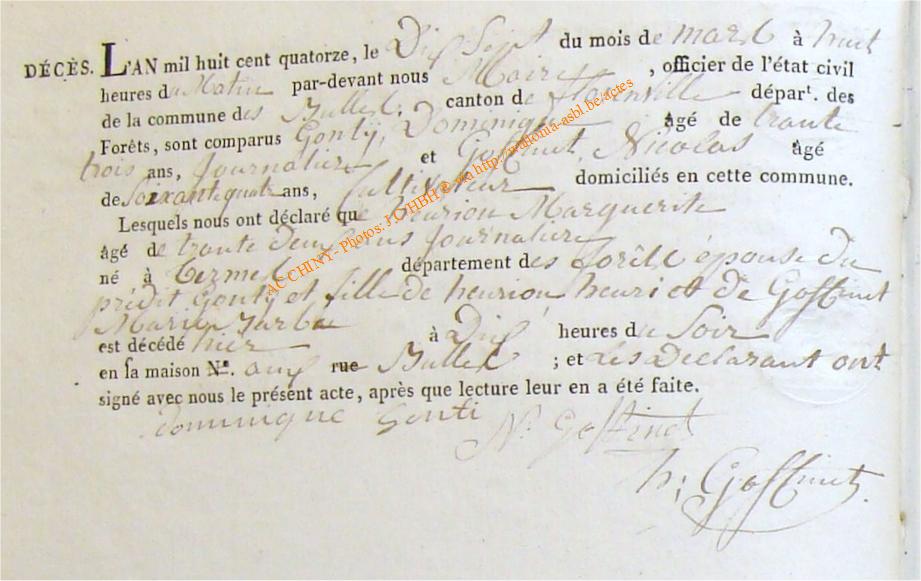 DÉCÈS. L'AN mil huit cent quatorze, le Dix Sept du mois de mars à huit
heures du Matin par-devant nous Maire, officier de l'état civil
de la commune des Bulles, canton de florenville départ. des
Forêts, sont comparus Gonty, Dominique âgé de trante
trois ans, Journalire et Goffinet, Nicolas âgé
de Soixante quatr ans, Cultivateur domiciliés en cette commune.
Lesquels nous ont déclaré que henrion Marguerite
âgé de trante deux ans Journalire
né à termes département des forêts épouse du
prédit Gonty et fille de henrion henri et de Goffinet
Marie Barbe
est décédé hier à Dix heures du Soir
en sa maison N°. rue Bulles ; et Les Declarant ont
signé avec nous le présent acte, après que lecture leur en a été faite.
Dominique Gonti
N. Goffinet
h: Goffinet.
ACCHINY- Photos. J.OHBH @ via http://wallonia-asbl.be/actes